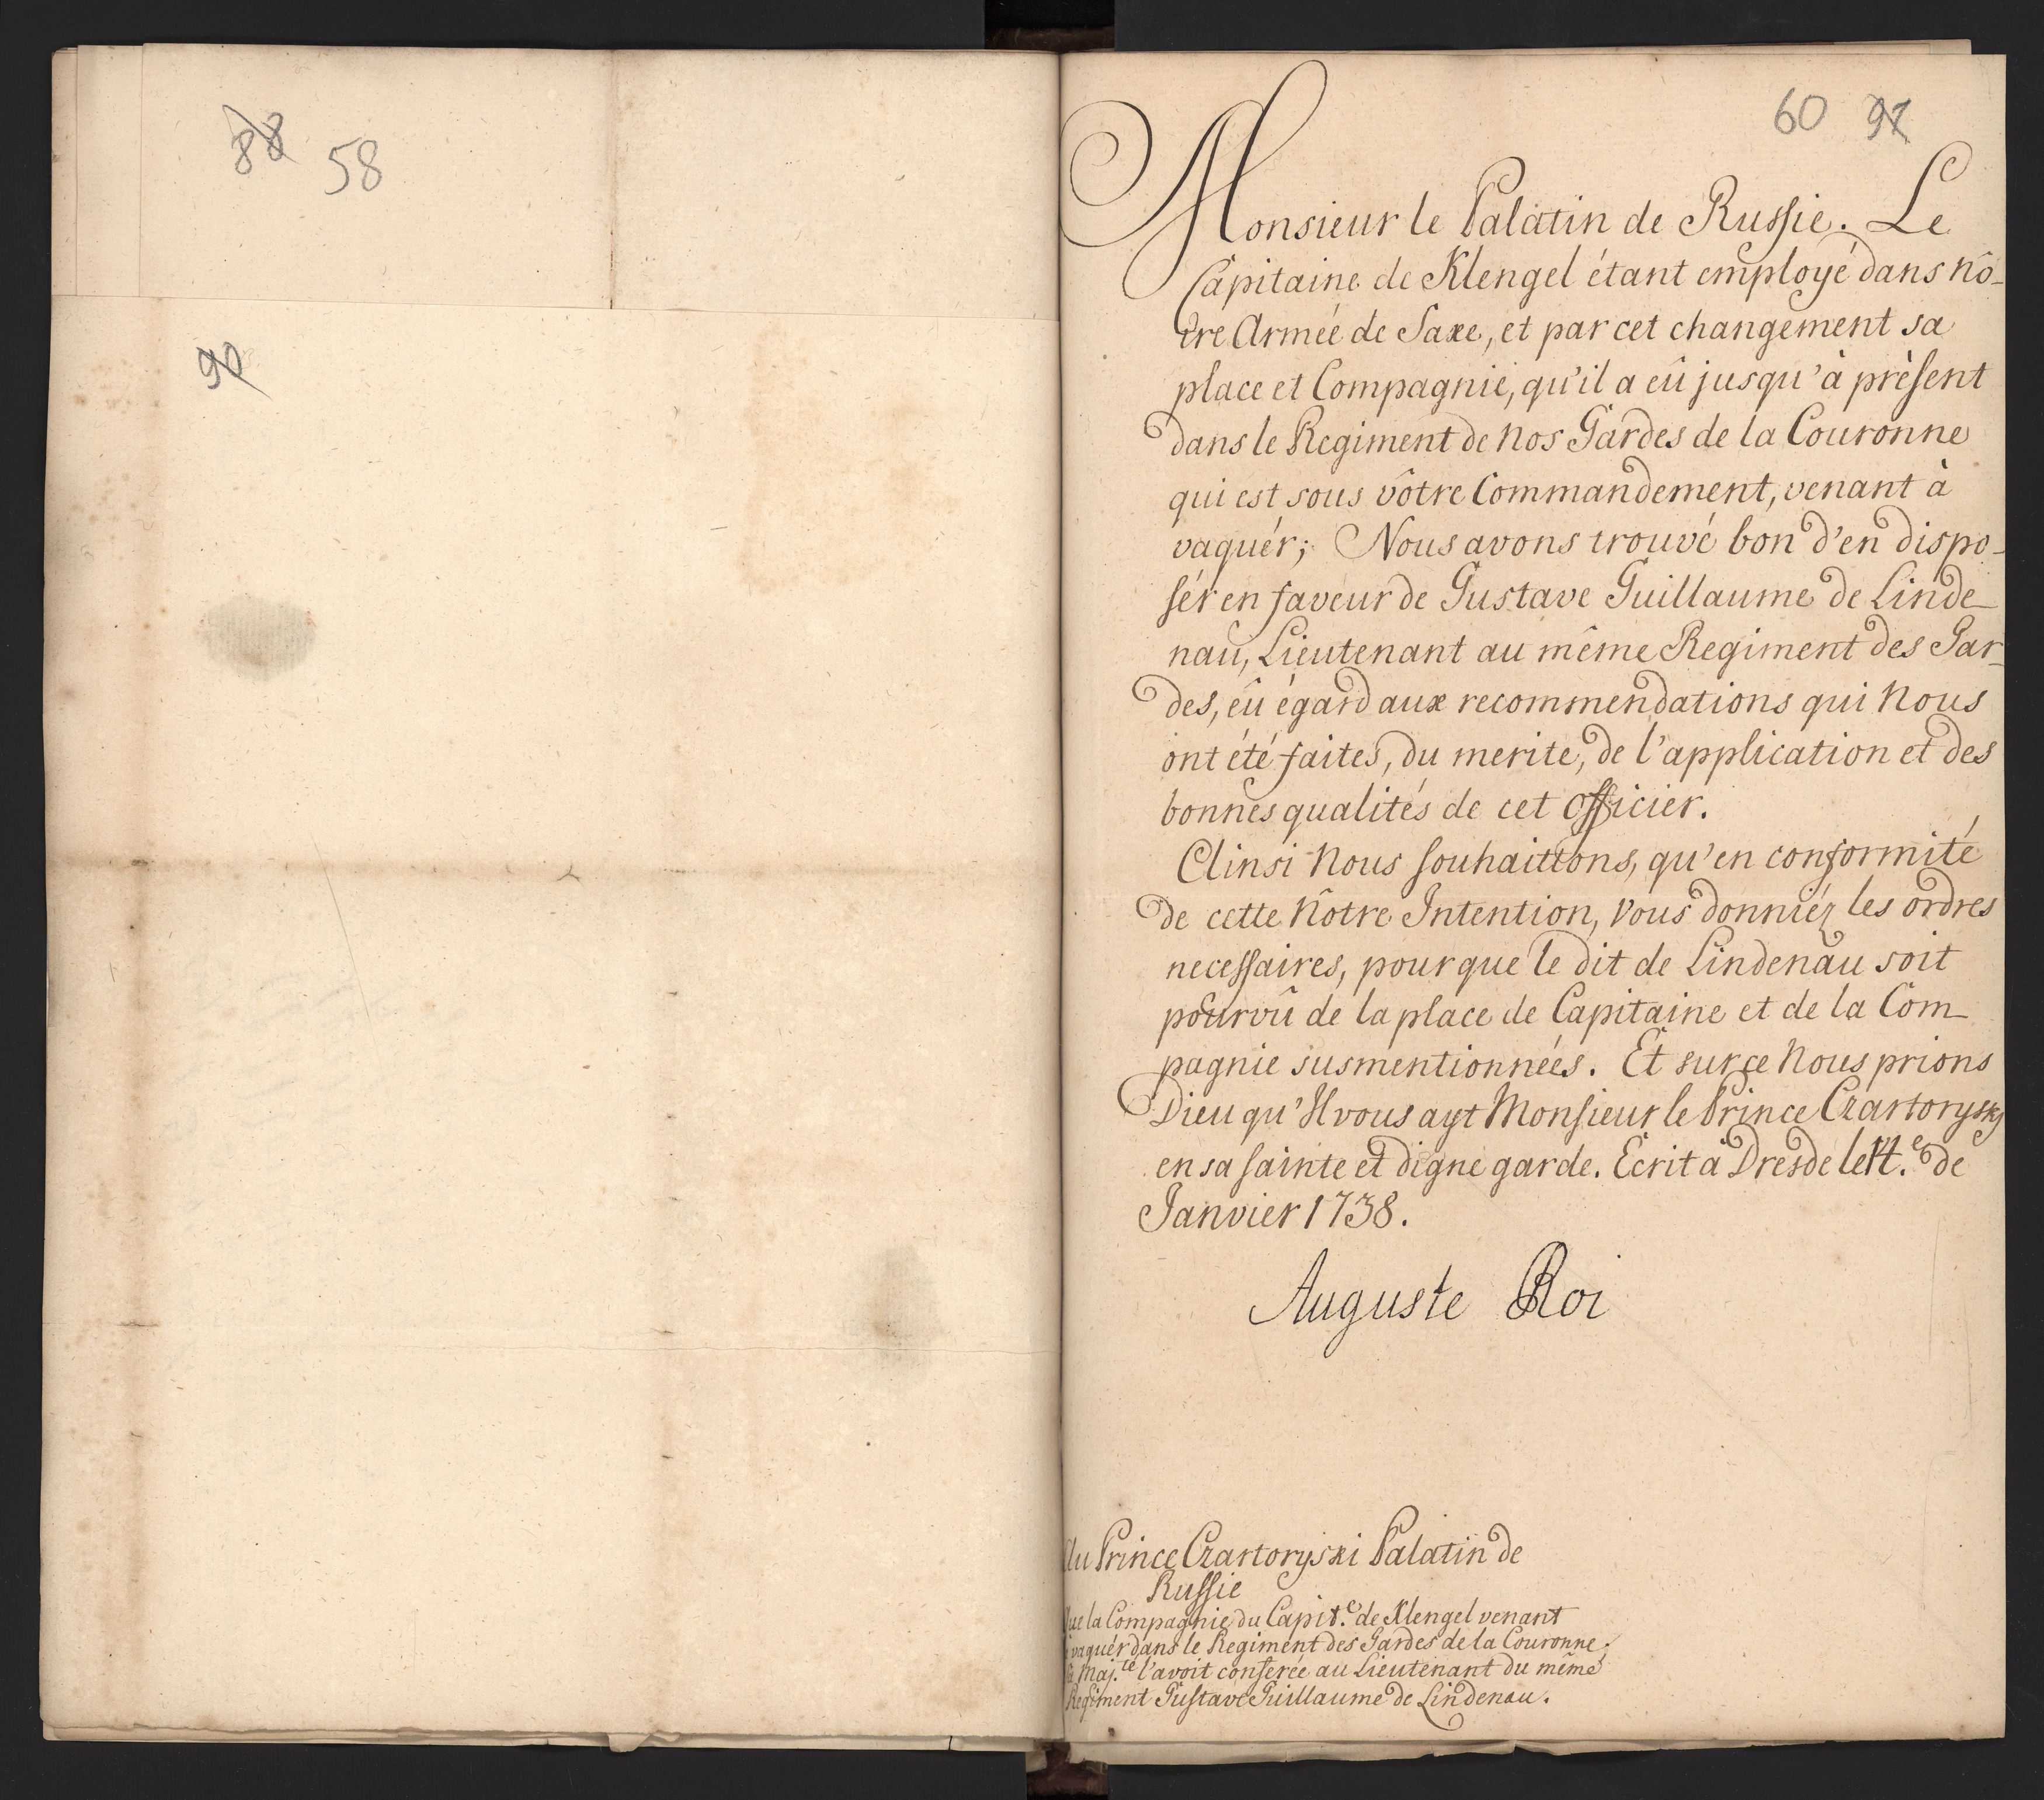 88 58
90
60 91
Monsieur le Palatin de Russie. Le
Capitaine de Klengel étant employé dans nô-
tre Armée de Saxe, et par cet changement sa
place et Compagnie, qu'il a eû jusqu'à prèsent
dans le Regiment de nos Gardes de la Couronne
qui est sous vôtre Commandement, venant à
vaquér; Nous avons trouvé bon d'en dispo-
sér en faveur de Gustave Guillaume de Linde-
nau, Lieutenant au même Regiment des Gar-
des, eû égard aux recommendations qui Nous
ont été faites, du merite, de l'application et des
bonnes qualités de cet Officier.
Ainsi Nous souhaittons, qu'en conformité
de cette Nôtre Intention, Vous donniéz les ordres
necessaires, pour que le dit de Lindenau soit
pourvû de la place de Capitaine et de la Com-
pagnie susmentionnées. Et sur ce Nous prions
Dieu qu'Il vous ayt Monsieur le Prince Czartorysky
en sa sainte et digne garde. Ecrit à Dresde le e de
Janvier 1738.
Auguste Roi
Au Prince Czartoryski Palatin de
Russie
Que la Compagnie du Capit.e de Klengel venant
à vaquér dans le Regiment des Gardes de la Couronne,
Sa Maj.té l'avoit conferée au Lieutenant du même
Regiment Gustave Guillaume de Lindenau.